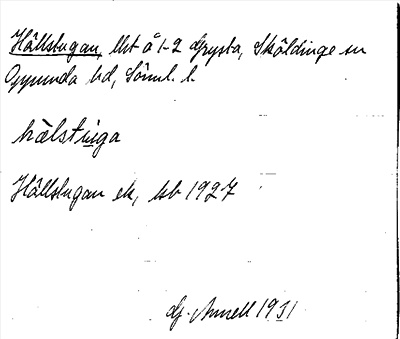 Hällstugan, lht å 1-2 Grysta, Sköldinge sn
Oppunda hd, Söml. l.
hälstuga
Hällstugan ek, kb 1927
G. Annell 1931